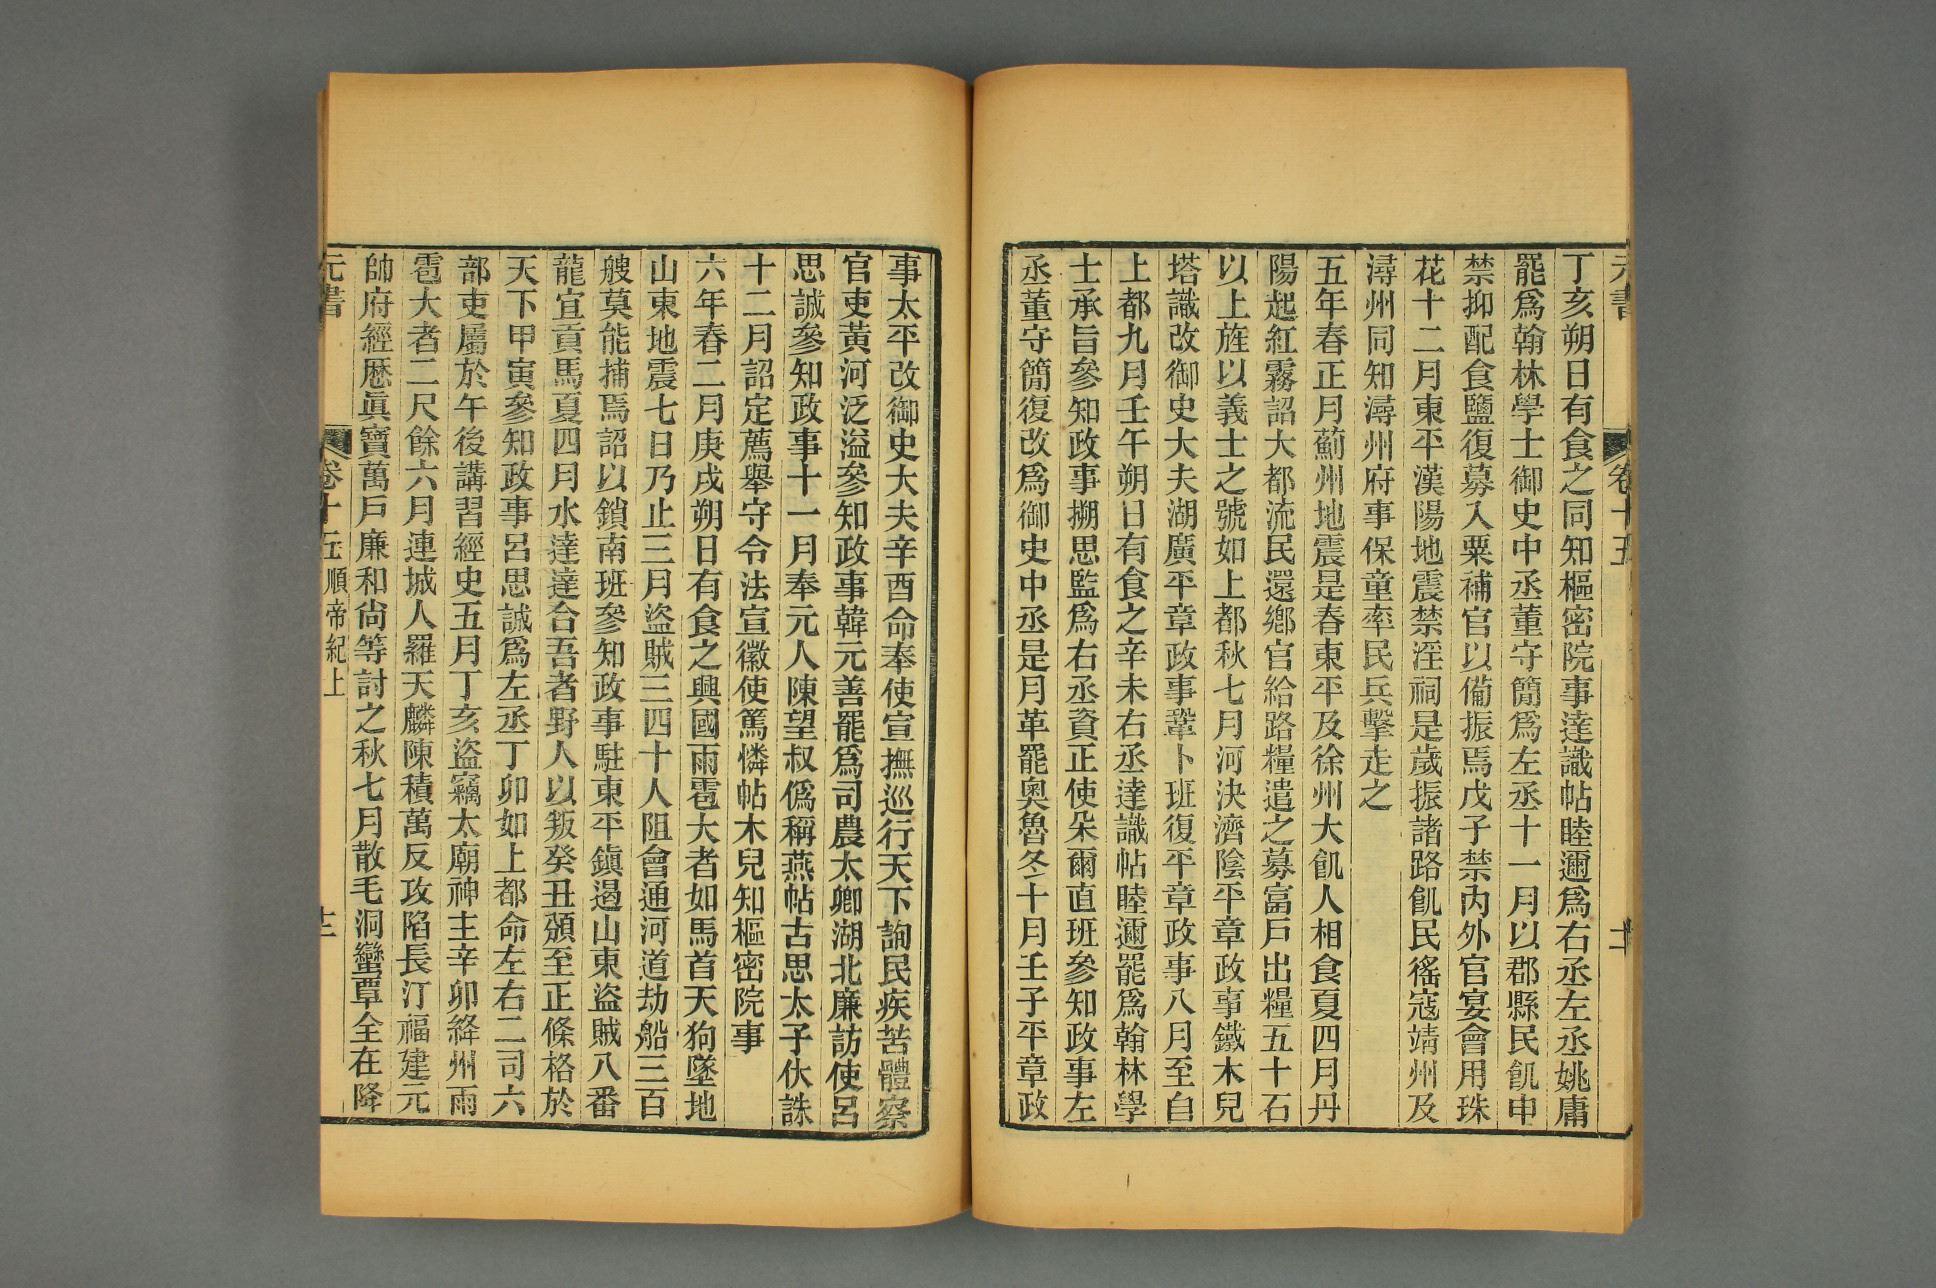 元書
卷十五
十一
丁亥朔日有食之同知樞密院事達識帖睦邇爲右丞左丞姚庸
罷爲翰林學士御史中丞董守簡爲左丞十一月以郡縣民飢申
禁抑配食鹽復募入粟補官以備振焉戊子禁內外官宴會用珠
花十二月東平漢陽地震禁淫祠是歲振諸路飢民徭寇靖州及
潯州同知潯州府事保童率民兵擊走之
五年春正月薊州地震是春東平及徐州大飢人相食夏四月丹
陽起紅霧詔大都流民還鄉官給路糧遣之募富戶出糧五十石
以上旌以義士之號如上都秋七月河決濟陰平章政事鐵木兒
塔識改御史大夫湖廣平章政事鞏卜班復平章政事八月至自
上都九月壬午朔日有食之辛未右丞達識帖睦邇罷爲翰林學
士承旨參知政事搠思監爲右丞資正使朵爾直班參知政事左
丞董守簡復改爲御史中丞是月革罷奧魯冬十月壬子平章政
事太平改御史大夫辛酉命奉使宣撫巡行天下詢民疾苦體察
官吏黃河泛溢參知政事韓元善罷爲司農太卿湖北廉訪使呂
思誠參知政事十一月奉元人陳望叔僞稱燕帖古思太子伏誅
十二月詔定薦舉守令法宣徽使篤憐帖木兒知樞密院事
六年春二月庚戌朔日有食之興國雨雹大者如馬首天狗墜地
山東地震七日乃止三月盜賊三四十人阻會通河道劫船三百
艘莫能捕焉詔以鎖南班參知政事駐東平鎮遏山東盜賊八番
龍宜貢馬夏四月水達達合吾者野人以叛癸丑頒至正條格於
天下甲寅參知政事呂思誠爲左丞丁卯如上都命左右二司六
部吏屬於午後講習經史五月丁亥盜竊太廟神主辛卯絳州雨
雹大者二尺餘六月連城人羅天麟陳積萬反攻陷長汀福建元
帥府經厯眞寶萬戶廉和尙等討之秋七月散毛洞蠻覃全在降
元書
卷十五
順帝紀上
十二